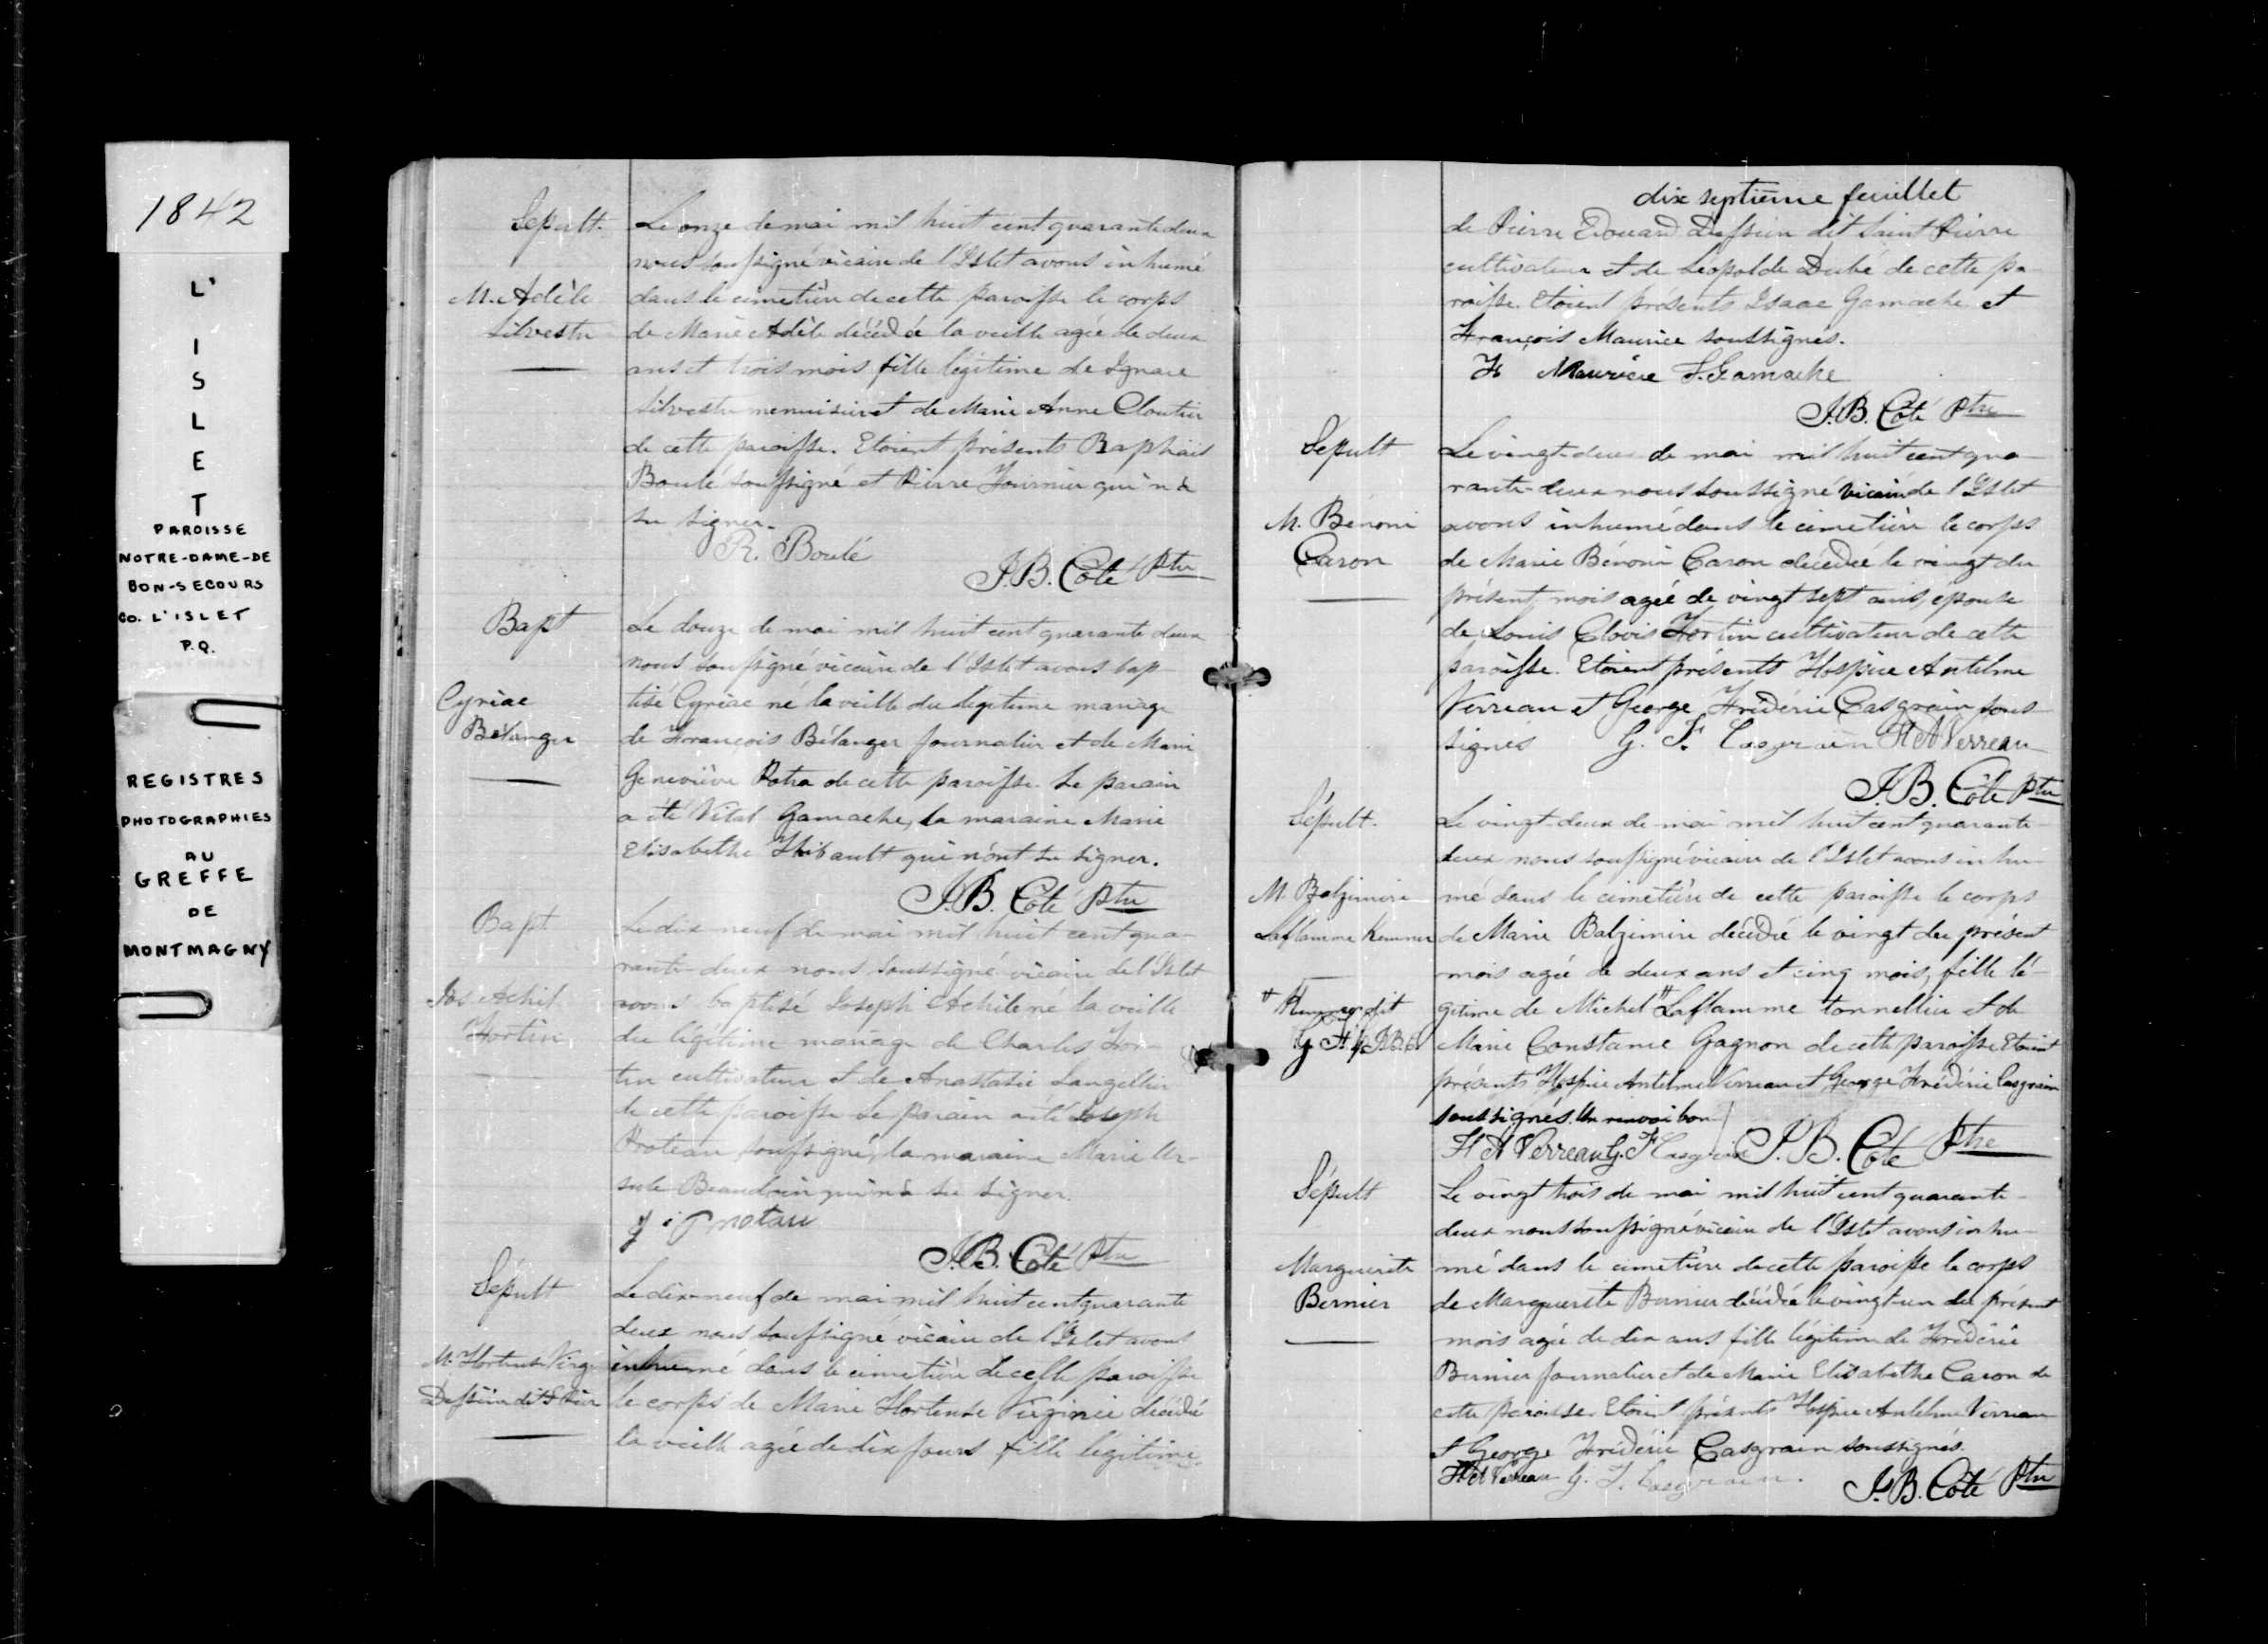 1842
L'
I
S
L
E
T
PAROISSE
NOTRE-DAME-DE
BON-SECOURS
CO. L'ISLET
P.Q.
REGISTRES
PHOTOGRAPHIES
AU
GREFFE
DE
MONTMAGNY
Sepult.
M. Adèle
Silvestre
Le onze de mai mil huit cent quarante deux
nous soussigné vicaire de l'Islet avons inhumé
dans le cimetière de cette paroisse le corps
de Marie Adèle décédée la veille agée de deux
ans et trois mois fille légitime de Ignace
Silvestre menuisier et de Marie Anne Cloutier
de cette paroisse. Etoient présents Raphael
Boulé soussigné et Pierre Fournier qui n'a
su signer.
R. Boulé
J.B. Coté Ptre
Bapt
Cyriac
Bélanger
Le douze de mai mil huit cent quarante deux
nous soussigné vicaire de l'Islet avons bap
tisé Cyriac né la veille du légitime mariage
de François Bélanger journalier et de Marie
Geneviève de cette paroisse. Le parain
a été Vital Gamache, la maraine Marie
Elisabethe Thibault qui n'ont su signer.
J.B. Coté Ptre
Bapt
Jos Achil
Fortin
Le dix-neuf de mai mil huit cent qua-
rante-deux nous soussigné vicaire de l'Islet
avons baptisé Joseph Achile né la veille
du légitime mariage de Charles For-
tin cultivateur et de Anastasie Langellier
de cette paroisse Le parain a été Joseph
Proteau soussigné, la maraine Marie Ur-
sule Beaudoin qui n'a su signer.
J.B. Coté Ptre
Sépult
M. Hortense Virg.
Dessein dit St Pier
Le dix-neuf de mai mil huit cent quarante
deux nous soussigné vicaire de l'Islet avons
inhumé dans le cimetière de cette paroisse
le corps de Marie Hortense Virginie décédée
la veille agée de dix jours fille légitime
dix septième feuillet
de Pierre Edouard Dessein dit Saint Pierre
cultivateur et de Léopolde Dubé de cette pa-
roisse. Etoient présents Isaac Gamache et
François Maurice soussignés.
Fs Maurice I. Gamache
J.B. Coté Ptre
Sépult
M. Bénoni
Caron
Le vingt-deux de mai mil huit cent qua-
rante-deux nous soussigné vicaire de l'Islet
avons inhumé dans le cimetière le corps
de Marie Bénoni Caron décédée le vingt du
présent mois agée de vingt sept ans, épouse
de Louis Clovis Fortin cultivateur de cette
paroisse. Etoient présents Hospice Antelme
Verreau et George Frédéric Casgrain sous
signés G. F. Casgrain H A Verreau
J.B. Coté Ptre
Sépult.
M. Balzimire
Laflamme Kemner
# Kemner dit
Le vingt-deux de mai mil huit cent quarante-
deux nous soussigné vicaire de l'Islet avons inhu-
mé dans le cimetière de cette paroisse le corps
de Marie Balzimire décédée le vingt du présent
mois agée de deux ans et cinq mois, fille lé-
gitime de Michel # Laflamme tonnellier et de
Marie Constance Gagnon de cette paroisse Etoient
présents Hospice Antelme Verreau et George Frédéric Casgrain
soussignés. Un renvoi bon
H A Verreau G. F Casgrain J.B. Coté Ptre
Sépult
Marguerite
Bernier
Le vingt trois de mai mil huit cent quarante-
deux nous soussigné vicaire de l'Islet avons inhu-
mé dans le cimetière de cette paroisse le corps
de Marguerite Bernier décédée le vingt-un du présent
mois agée de dix ans fille légitime de Frédéric
Bernier journalier et de Marie Elisabethe Caron de
cette paroisse. Etoient présents Hospice Antelme Verreau
et George Frédéric Casgrain soussignés.
H A Verreau G. F. Casgrain. J.B. Coté Ptre